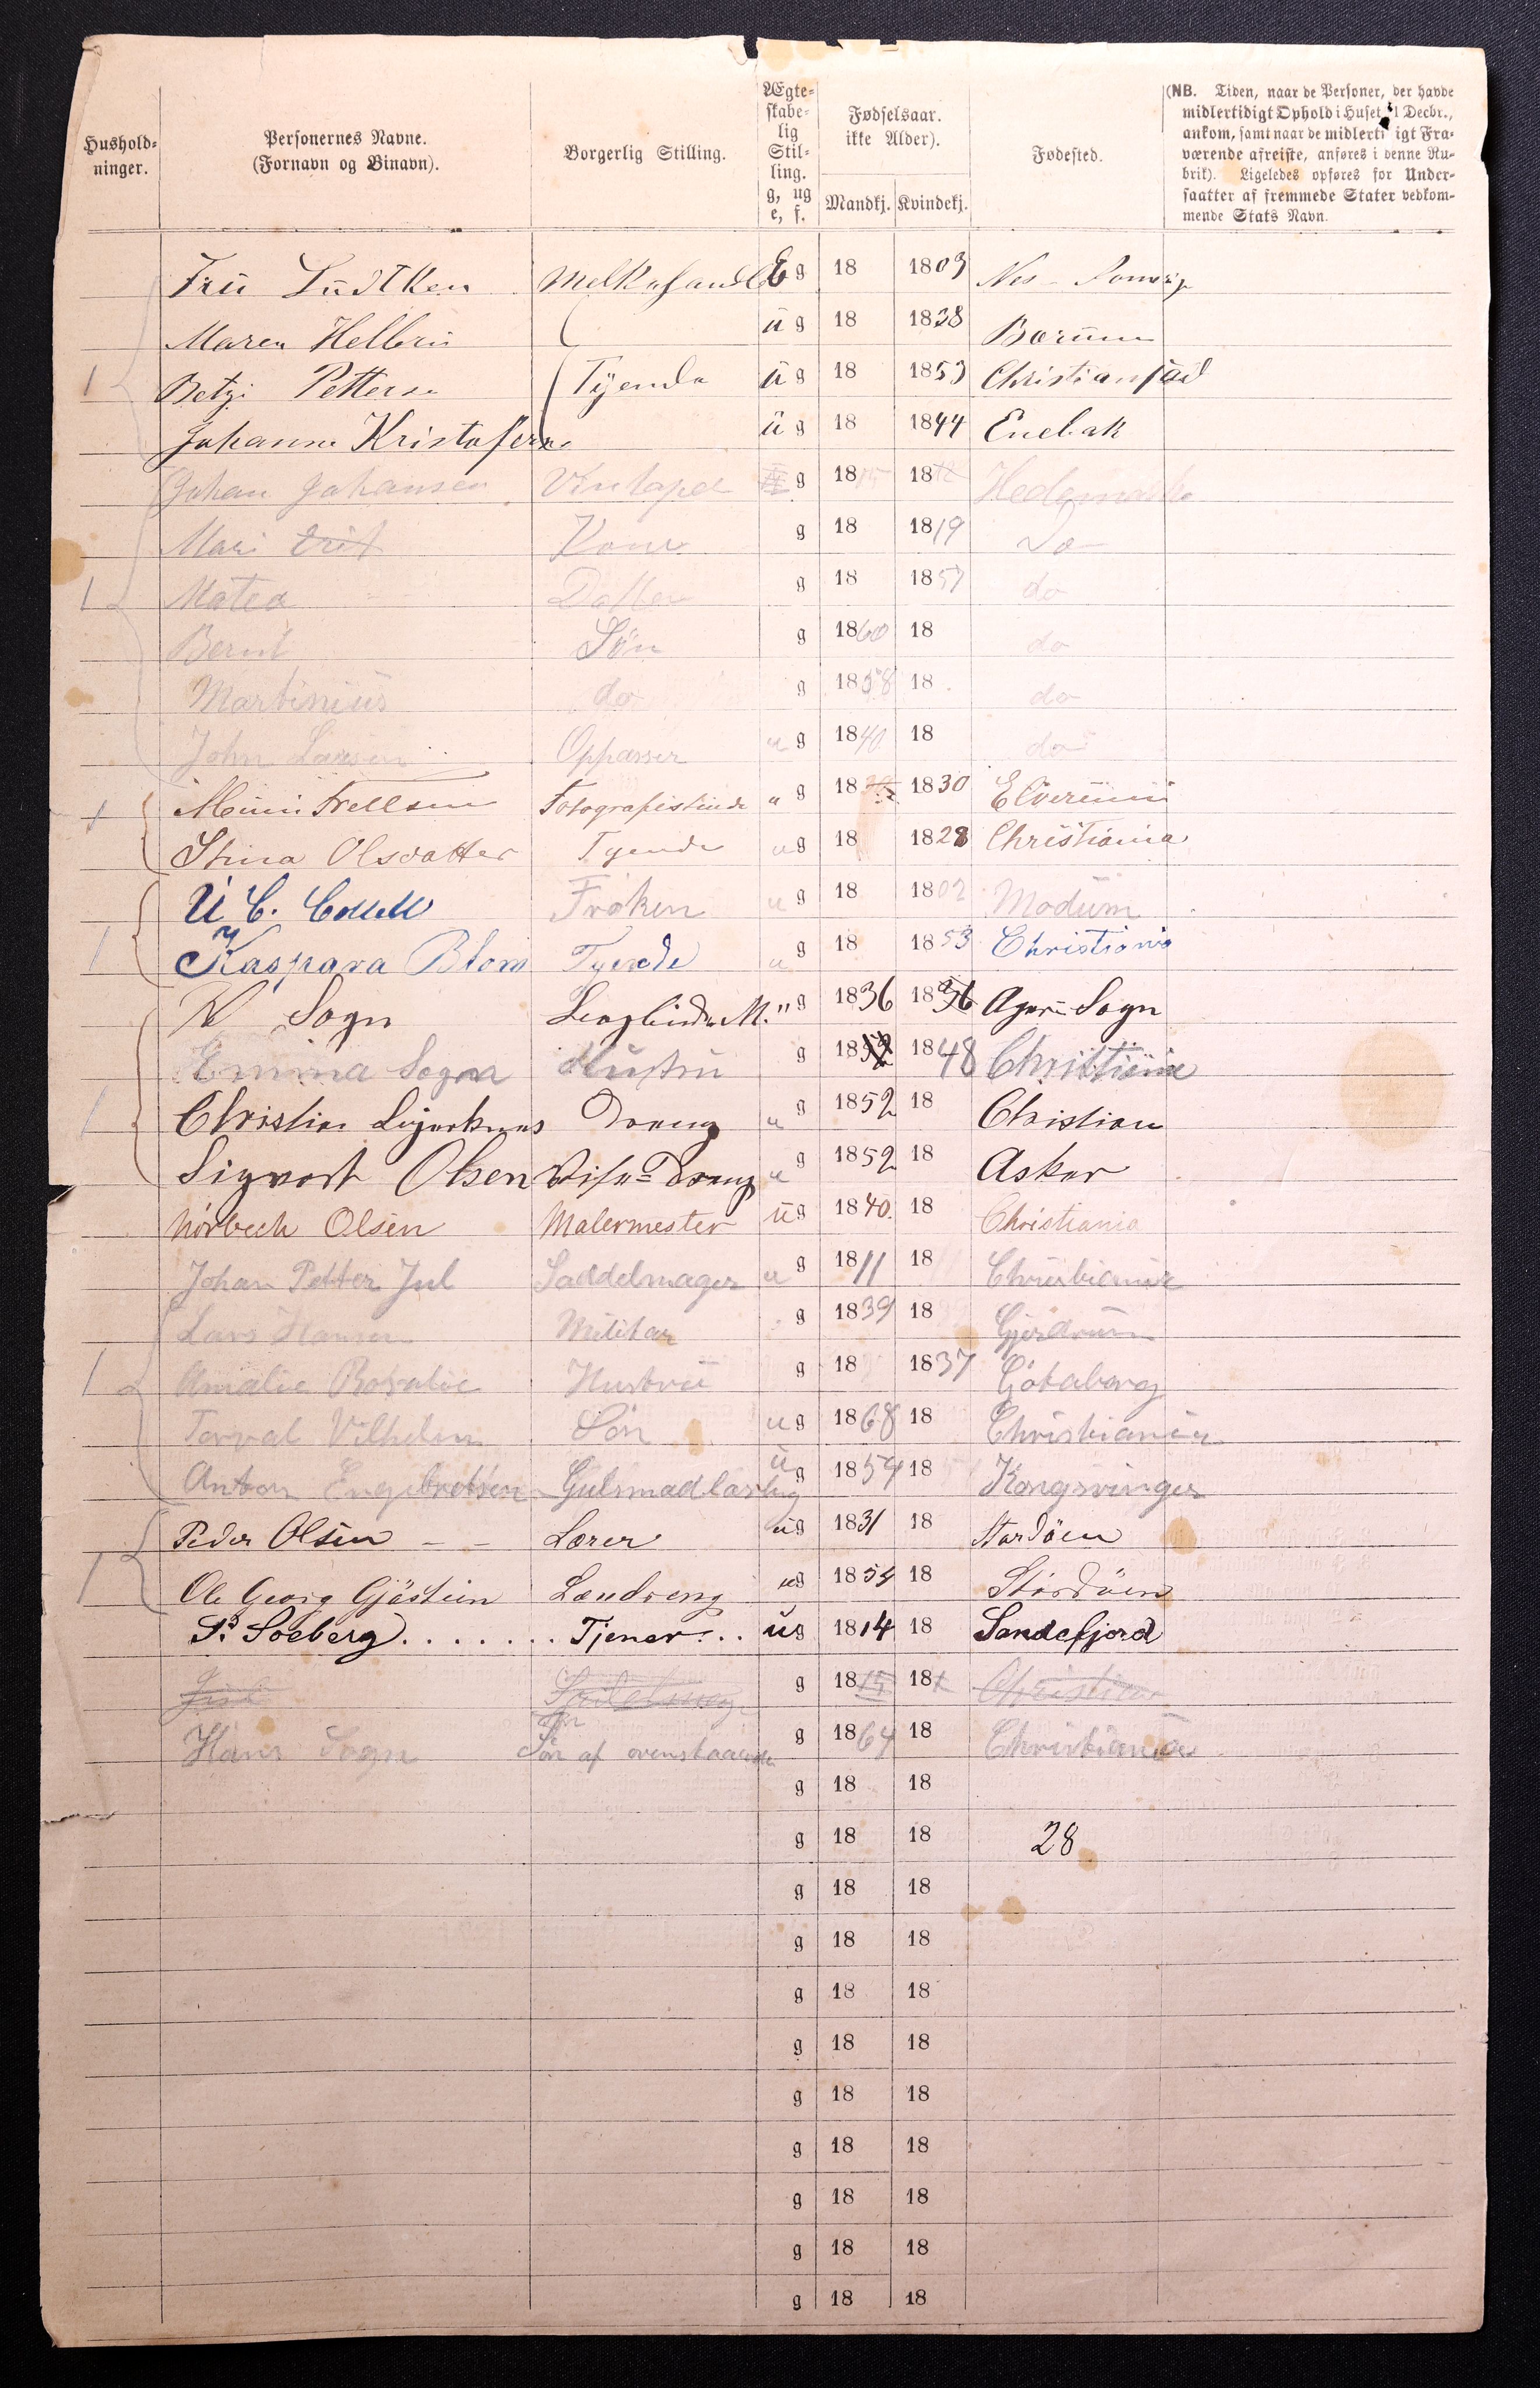 Hushold-
ninger.
Personernes Navne.
(Fornavn og Binavn).
Borgerlig Stilling.
Ægte-
skabe-
lig
Stil-
ling.
g, ug
e, f.
Fødselsaar.
ikke Alder).
Mandkj. Kvindekj.
Fødested.
(NB. Tiden, naar de Personer, der havde
midlertidigt Ophold i Huset 1 Decbr.,
ankom, samt naar de midlerti igt Fra-
værende afreiste, anføres i denne Ru-
brik). Ligeledes opføres for Under-
saatter af fremmede Stater vedkom-
mende Stats Navn.
Frü Lüdtken E g 18 1803 Nes
Maren ü g 18 1838 Bærüm
1 Betzi Petterse Tÿende ü g 18 1853
Johanne Kristofersen ü g 18 1844 Enebak
Johan Johansen g 18 18 Hedemarke
Mari Kone g 18 1819 Do
1 Matea Datter g 18 1857 do
Bernt Sön g 1860 18 do
Martinius do g 1858 18 do
John Larsen Oppasser u g 1840 18 do
1 Fotografistinde u g 18 1830 Elverum
Stina Olsdatter Tyende u g 18 1828 Christiania
U C. Collett Frøken u g 18 1802 Modüm
1 Kaspara Blom Tyende u g 18 1853 Christiania
Sogn " g 1836 18 Agers Sogn
Emma Sogn Hustru g 18 1848 Christiania
1 Christian Dreng u g 1852 18 Christian
Sigvart Olsen Visedreng u g 1852 18 Asker
Nörbech Olsen Malermester ü g 1840 18 Christiania
Johan Petter Jul Saddelmager u g 1811 18 Christiania
Lars Hansen Militær g 1839 18 Gjerdrum
1 Amalie Rosalie Hustru g 18 1837 Götaborg
Torval Vilhelm Sön u g 1868 18 Christiania
Anton Engebretsen ü g 1854 18 Kongsvinger
Peder Olsen Lærer u g 1831 18 Stordöen
1 Ole Georg Gjöstein Læredreng u g 18 18 Stordöen
S. Soeberg . . . . . . . Tjener . . . ü g 1814 18 Sandefjord
g 1815 18 Christian
Hans Sogn Sön af ovenstaaende g 1864 18 Christiania
g 18 18
g 18 18 28
g 18 18
g 18 18
g 18 18
g 18 18
g 18 18
g 18 18
g 18 18
g 18 18
g 18 18